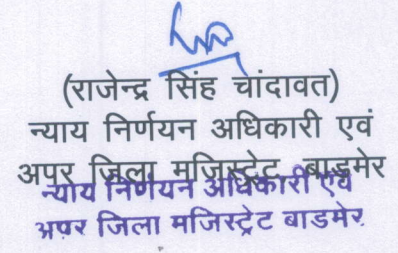 (राजेन्द्र सिंह चांदावत)
न्याय निर्णयन अधिकारी एवं
अपर जिला मजिस्ट्रेट बाडमेर
न्याय निर्णयन अधिकारी एवं
अपर जिला मजिस्ट्रेट बाडमेर